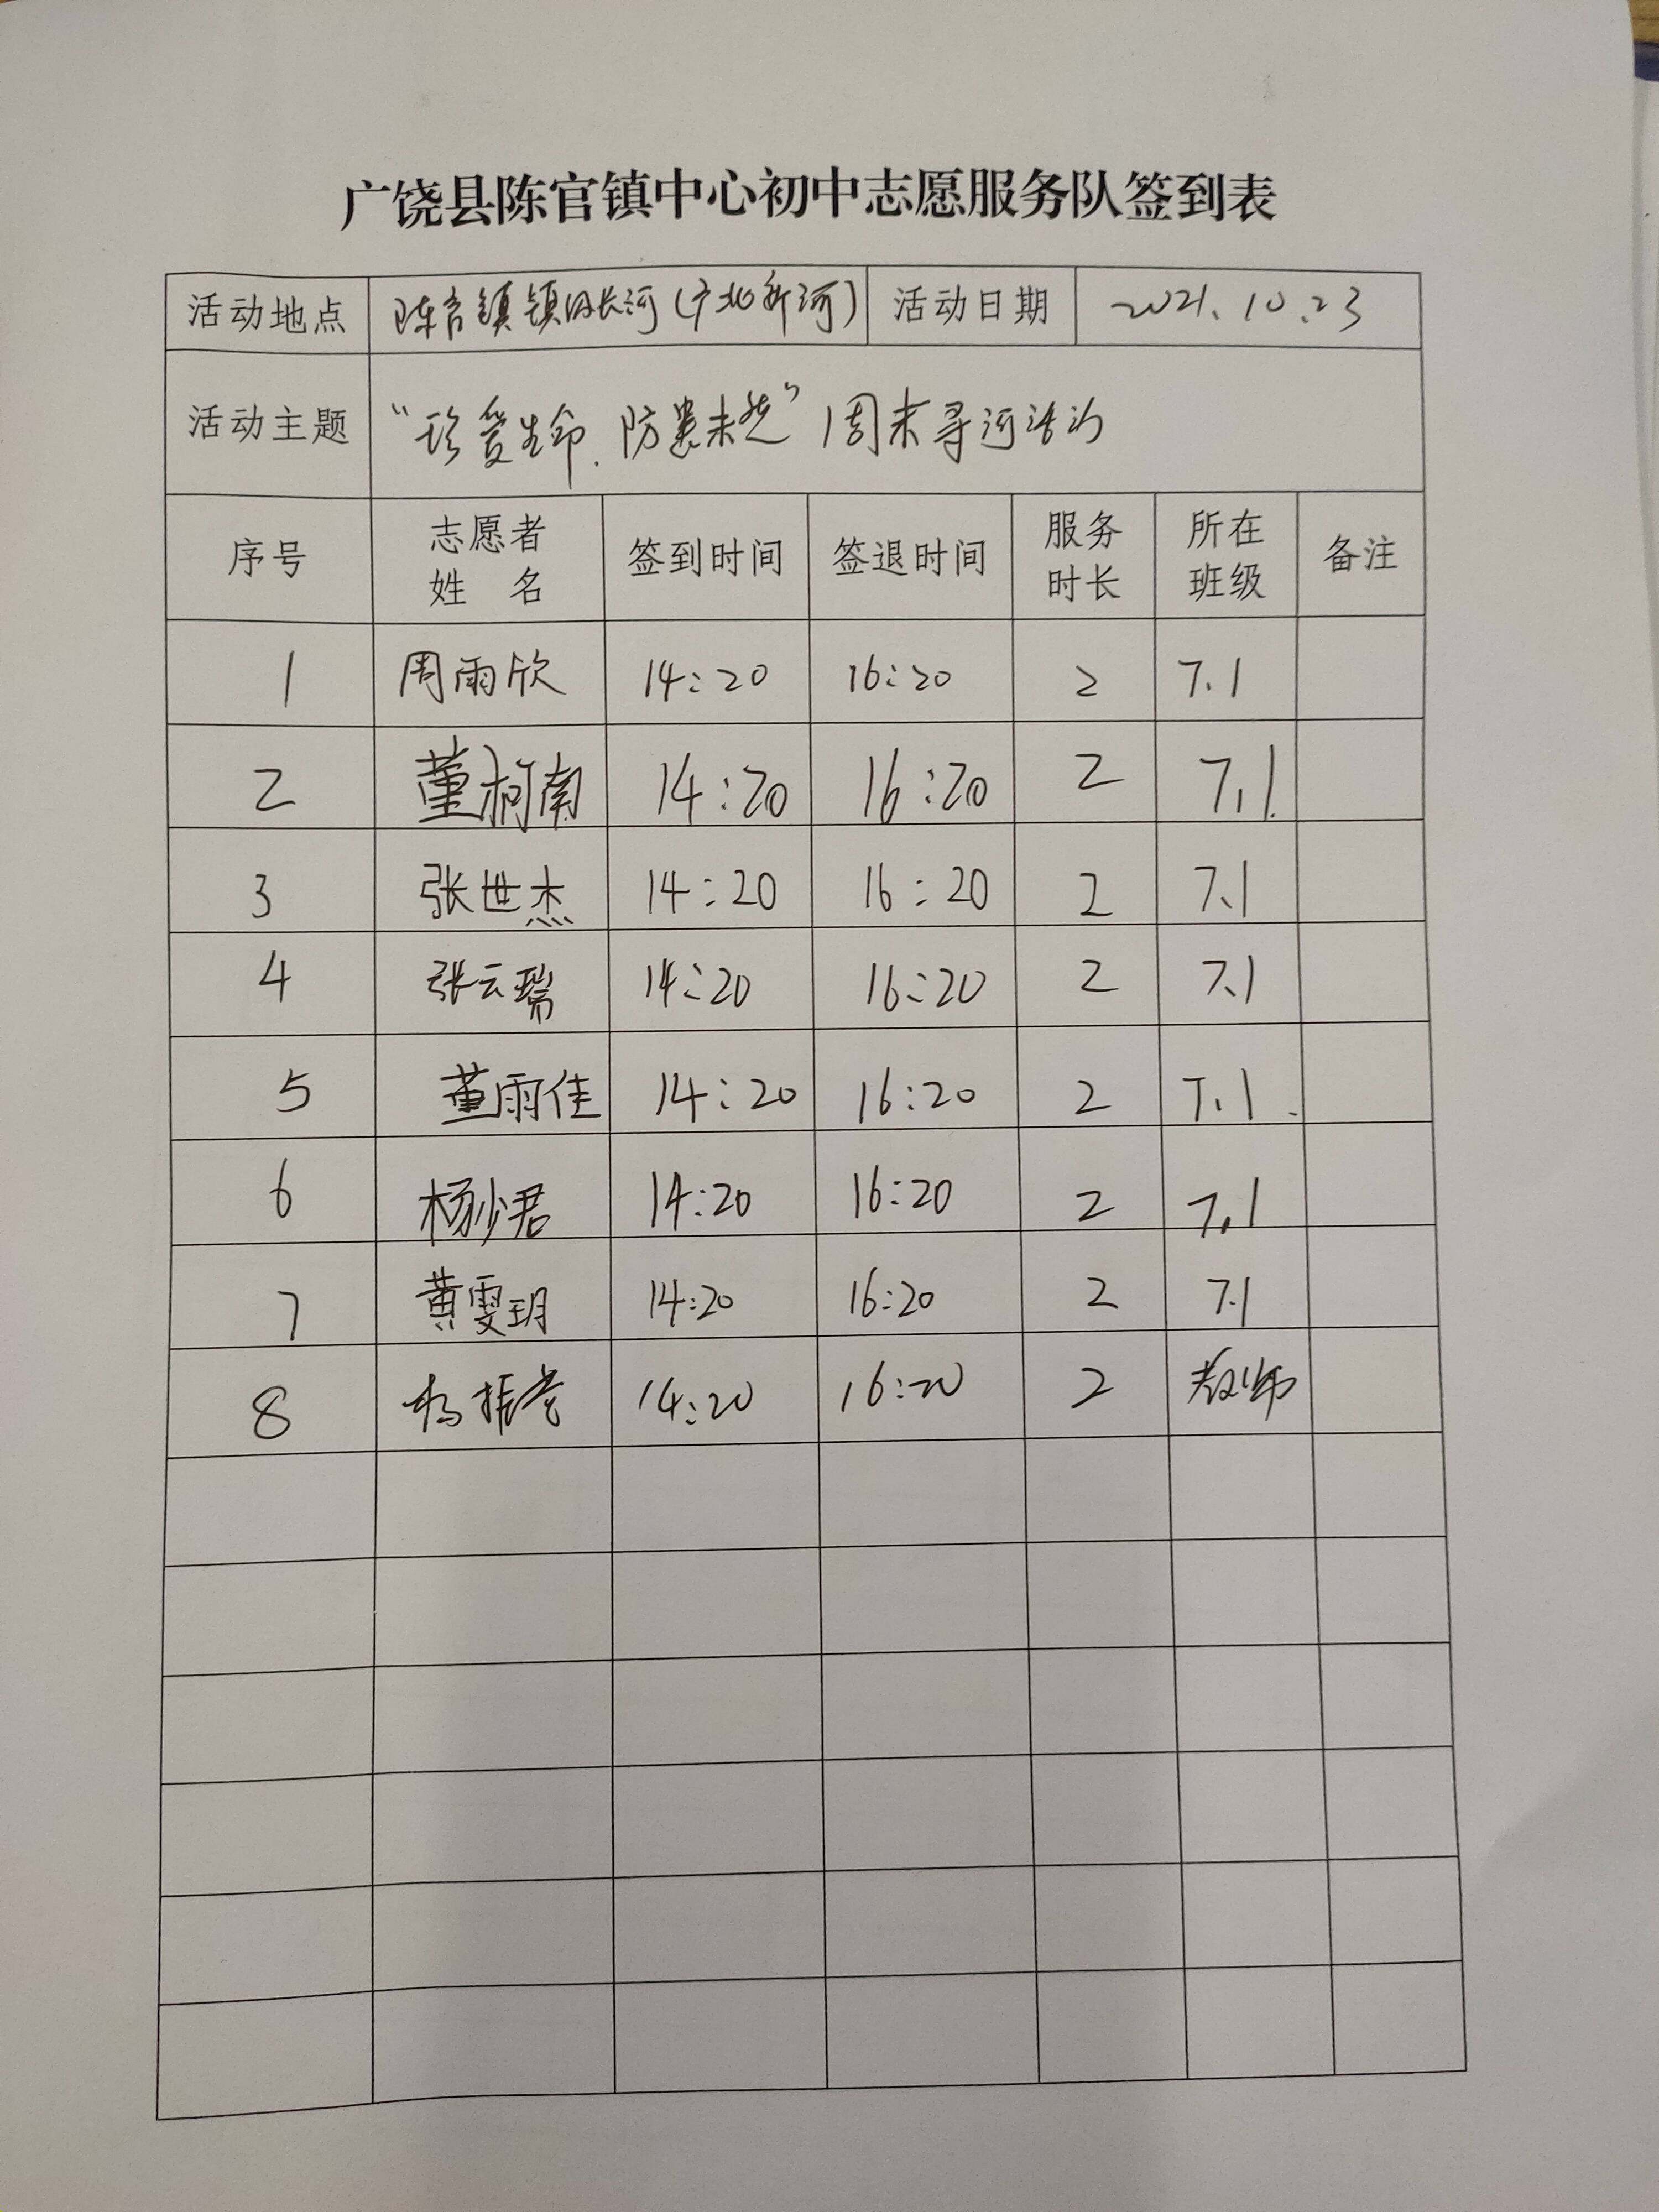 广饶县陈官镇中心初中志愿服务队签到表
活动地点 陈官镇镇内长河(广北新河) 活动日期 2021.10.23
活动主题 “珍爱生命.防患未然”周末寻河活动
序号 志愿者姓 名 签到时间 签退时间 服务时长 所在班级 备注
1 周雨欣 14:20 16:20 2 7.1
2 董柯南 14:20 16:20 2 7.1
3 张世杰 14:20 16:20 2 7.1
4 张云瑞 14:20 16:20 2 7.1
5 董雨佳 14:20 16:20 2 7.1
6 杨少君 14:20 16:20 2 7.1
7 黄雯玥 14:20 16:20 2 7.1
8 14:20 16:20 2 教师